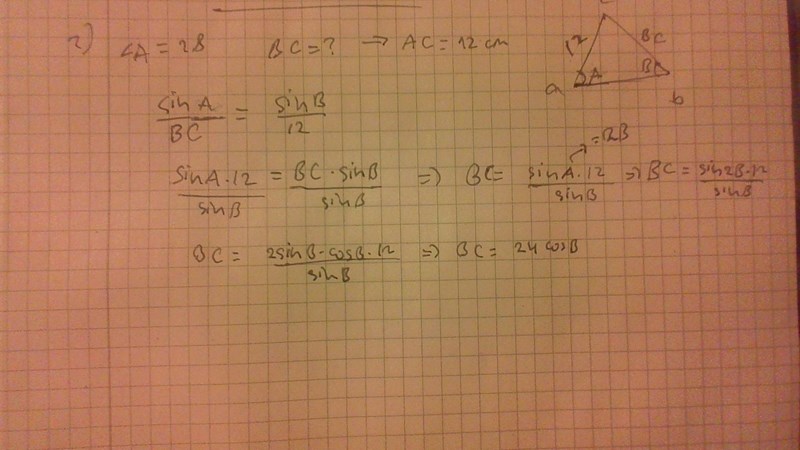 2) ∠A = 2B BC = ? → AC = 12 cm
12 BC
A B
a b
sinA/BC = sinB/12
sinA·12/sinB = BC·sinB/sinB => BC = sinA·12/sinB => BC = sin2B·12/sinB
= 2B
BC = 2sinB·cosB·12/sinB => BC = 24 cosB